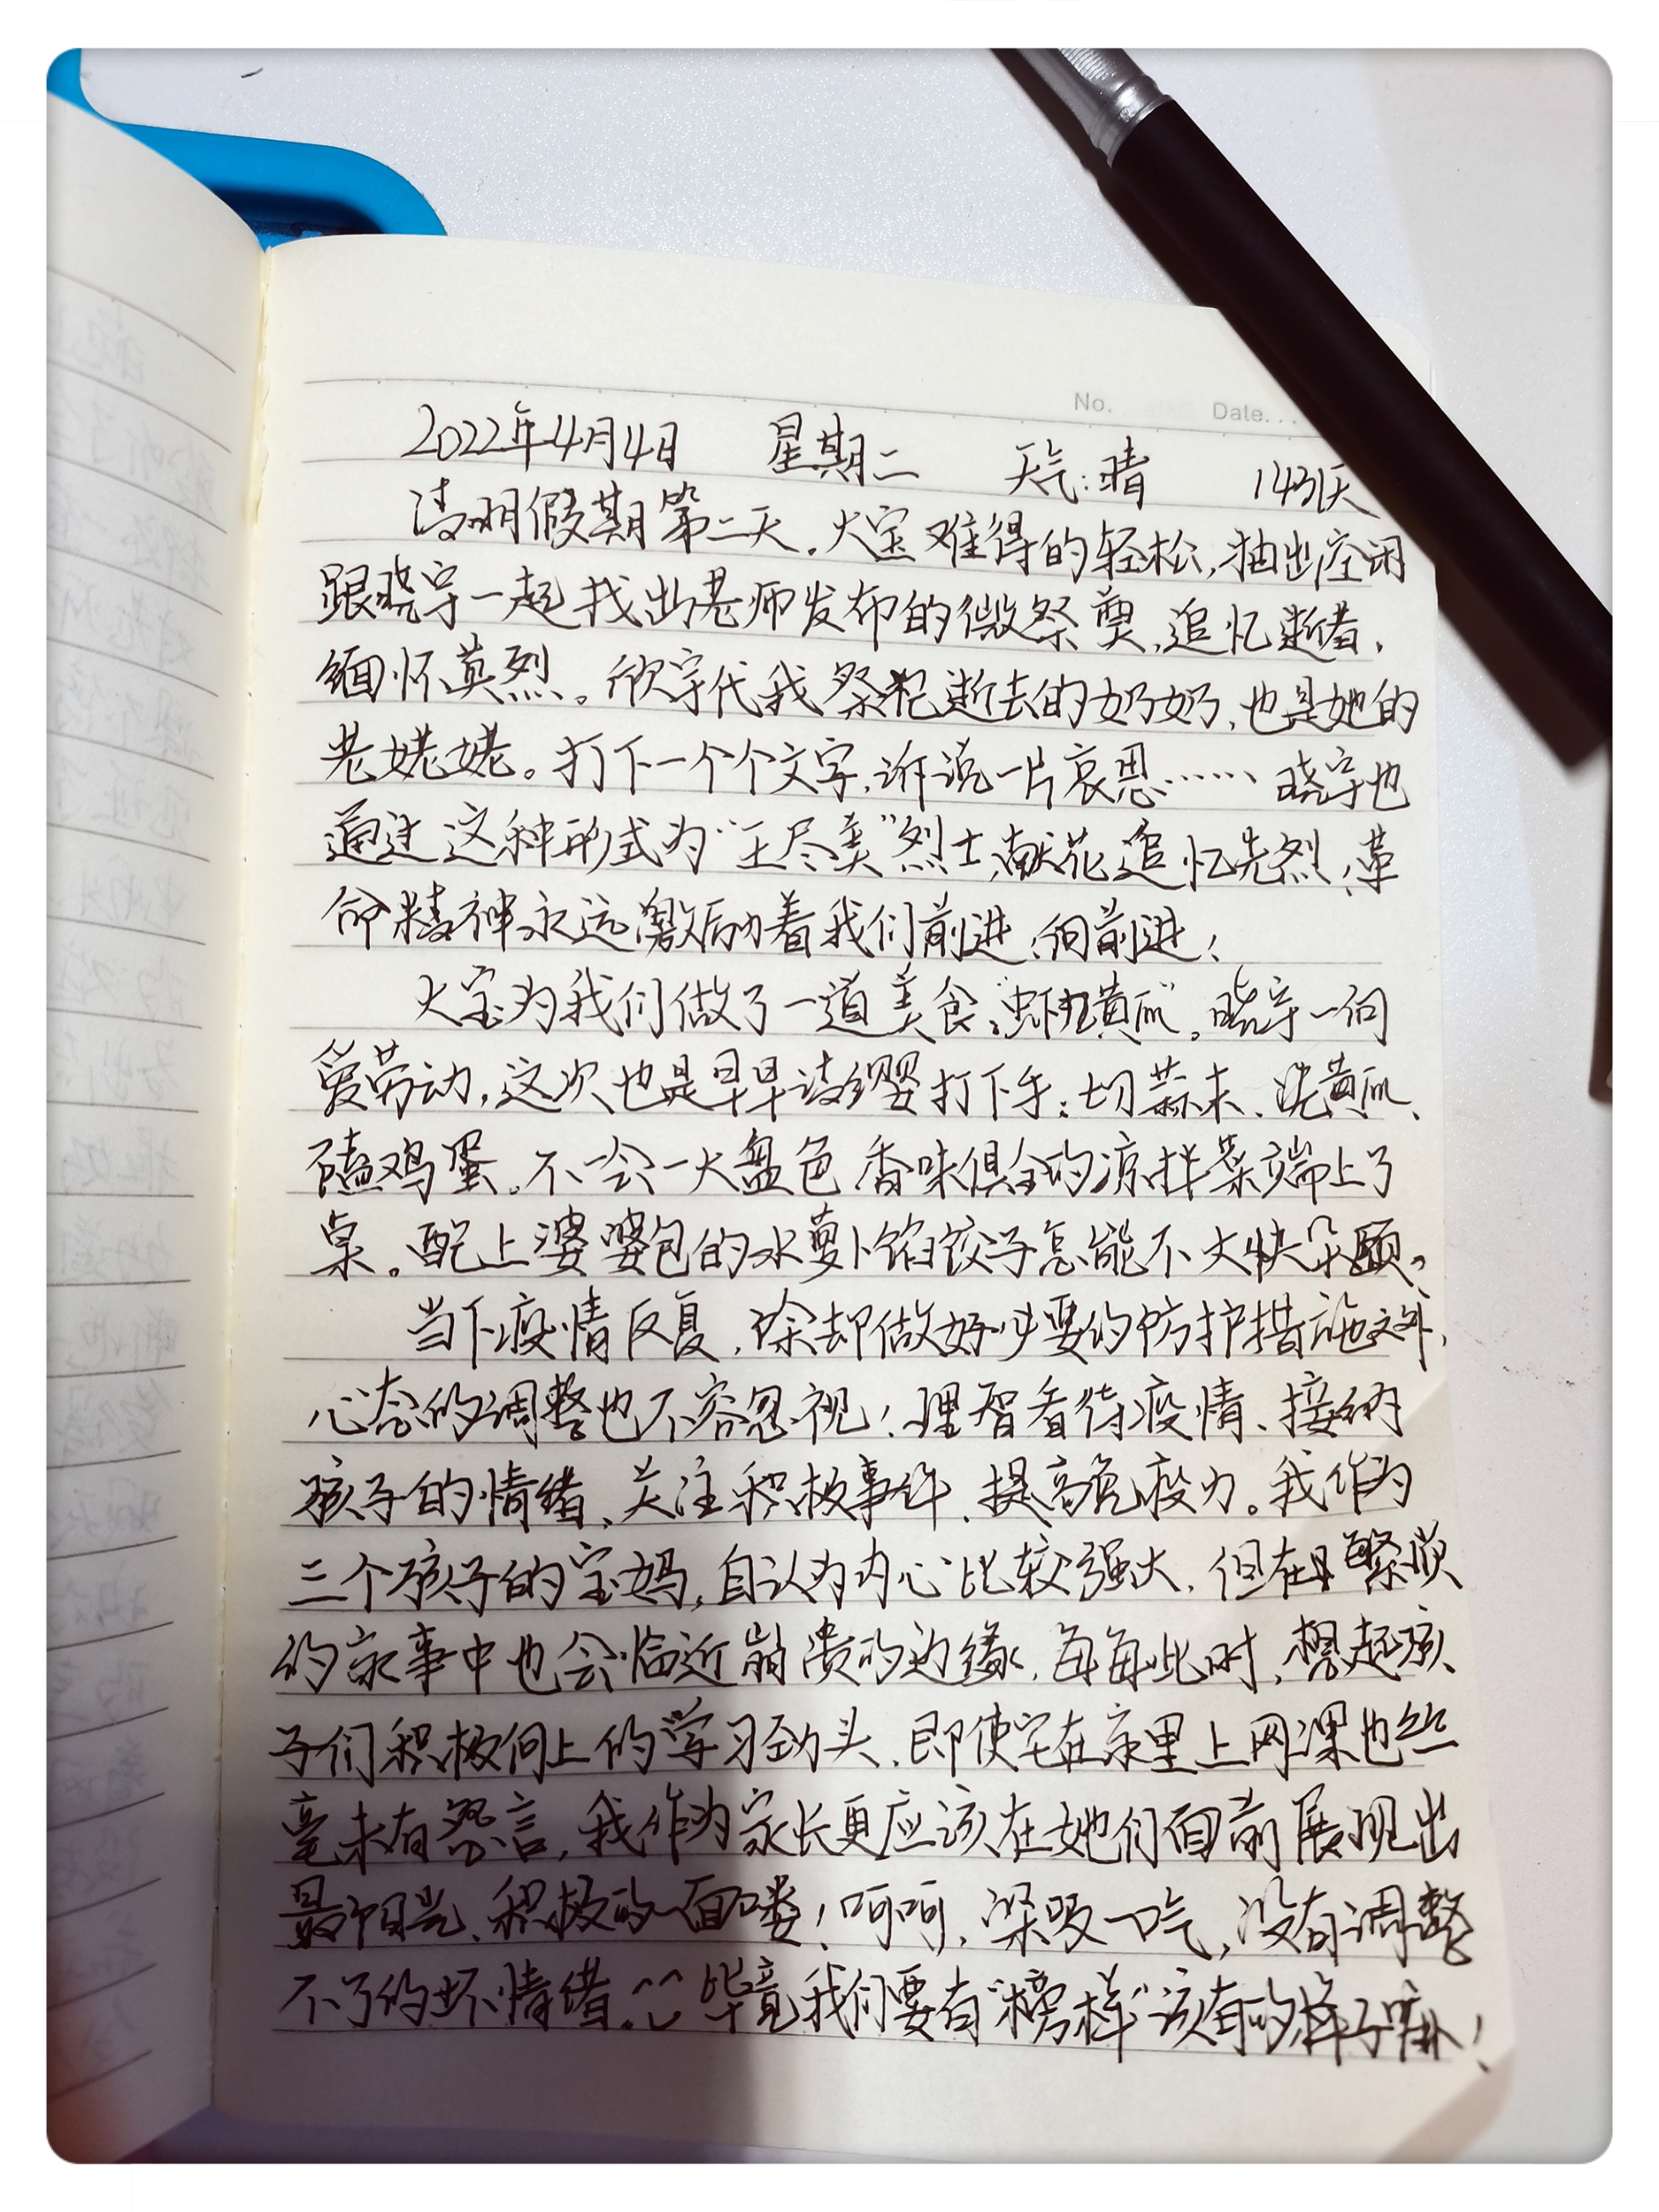 No. Date...
2022年4月4日 星期二 天气:晴 143天
清明假期第二天。大宝难得的轻松,抽出空闲
跟晓宇一起找出老师发布的微祭奠,追忆逝者,
缅怀英烈。欣宇代我祭祀逝去的奶奶,也是她的
老姥姥。打下一个个文字,诉说一片哀思…… 晓宇也
通过这种形式为“王尽美”烈士献花追忆先烈,革
命精神永远激励着我们前进,向前进!
大宝为我们做了一道美食“虾仁黄瓜”。晓宇一向
爱劳动,这次也是早早请缨打下手:切蒜末、洗黄瓜、
磕鸡蛋。不一会一大盘色香味俱全的凉拌菜端上了
桌。配上婆婆包的水萝卜馅饺子怎能不大快朵颐。
当下疫情反复,除却做好必要的防护措施之外,
心态的调整也不容忽视!理智看待疫情、接纳
孩子的情绪、关注积极事件、提高免疫力。我作为
三个孩子的宝妈,自认为内心比较强大,但在繁琐
的家事中也会临近崩溃的边缘,每每此时,想起孩
子们积极向上的学习劲头,即使宅在家里上网课也丝
毫未有怨言,我作为家长更应该在她们面前展现出
最阳光、积极的一面喽!呵呵,深吸一口气,没有调整
不了的坏情绪。^^毕竟我们要有“榜样”该有的样子嘛!